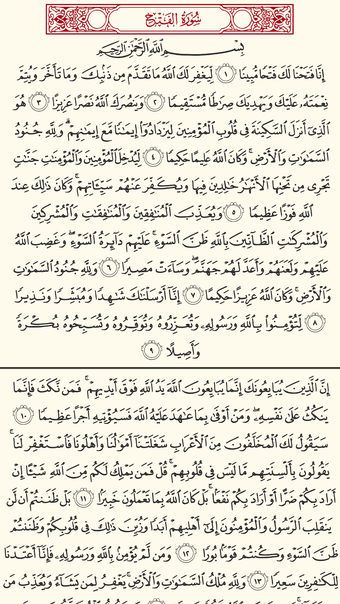 سُورَةُ الفَتْحِ
بِسْمِ اللَّهِ الرَّحْمَٰنِ الرَّحِيمِ
إِنَّا فَتَحْنَا لَكَ فَتْحًا مُّبِينًا ١ لِّيَغْفِرَ لَكَ اللَّهُ مَا تَقَدَّمَ مِن ذَنۢبِكَ وَمَا تَأَخَّرَ وَيُتِمَّ
نِعْمَتَهُۥ عَلَيْكَ وَيَهْدِيَكَ صِرَٰطًا مُّسْتَقِيمًا ٢ وَيَنصُرَكَ اللَّهُ نَصْرًا عَزِيزًا ٣ هُوَ
الَّذِىٓ أَنزَلَ السَّكِينَةَ فِى قُلُوبِ الْمُؤْمِنِينَ لِيَزْدَادُوٓا۟ إِيمَٰنًا مَّعَ إِيمَٰنِهِمْ ۗ وَلِلَّهِ جُنُودُ
السَّمَٰوَٰتِ وَالْأَرْضِ ۚ وَكَانَ اللَّهُ عَلِيمًا حَكِيمًا ٤ لِّيُدْخِلَ الْمُؤْمِنِينَ وَالْمُؤْمِنَٰتِ جَنَّٰتٍ
تَجْرِى مِن تَحْتِهَا الْأَنْهَٰرُ خَٰلِدِينَ فِيهَا وَيُكَفِّرَ عَنْهُمْ سَيِّـَٔاتِهِمْ ۚ وَكَانَ ذَٰلِكَ عِندَ
اللَّهِ فَوْزًا عَظِيمًا ٥ وَيُعَذِّبَ الْمُنَٰفِقِينَ وَالْمُنَٰفِقَٰتِ وَالْمُشْرِكِينَ
وَالْمُشْرِكَٰتِ الظَّآنِّينَ بِاللَّهِ ظَنَّ السَّوْءِ ۚ عَلَيْهِمْ دَآئِرَةُ السَّوْءِ ۖ وَغَضِبَ اللَّهُ
عَلَيْهِمْ وَلَعَنَهُمْ وَأَعَدَّ لَهُمْ جَهَنَّمَ ۖ وَسَآءَتْ مَصِيرًا ٦ وَلِلَّهِ جُنُودُ السَّمَٰوَٰتِ
وَالْأَرْضِ ۚ وَكَانَ اللَّهُ عَزِيزًا حَكِيمًا ٧ إِنَّآ أَرْسَلْنَٰكَ شَٰهِدًا وَمُبَشِّرًا وَنَذِيرًا
٨ لِّتُؤْمِنُوا۟ بِاللَّهِ وَرَسُولِهِۦ وَتُعَزِّرُوهُ وَتُوَقِّرُوهُ وَتُسَبِّحُوهُ بُكْرَةً
وَأَصِيلًا ٩
إِنَّ الَّذِينَ يُبَايِعُونَكَ إِنَّمَا يُبَايِعُونَ اللَّهَ يَدُ اللَّهِ فَوْقَ أَيْدِيهِمْ ۚ فَمَن نَّكَثَ فَإِنَّمَا
يَنكُثُ عَلَىٰ نَفْسِهِۦ ۖ وَمَنْ أَوْفَىٰ بِمَا عَٰهَدَ عَلَيْهُ اللَّهَ فَسَيُؤْتِيهِ أَجْرًا عَظِيمًا ١٠
سَيَقُولُ لَكَ الْمُخَلَّفُونَ مِنَ الْأَعْرَابِ شَغَلَتْنَآ أَمْوَٰلُنَا وَأَهْلُونَا فَاسْتَغْفِرْ لَنَا ۚ
يَقُولُونَ بِأَلْسِنَتِهِم مَّا لَيْسَ فِى قُلُوبِهِمْ ۚ قُلْ فَمَن يَمْلِكُ لَكُم مِّنَ اللَّهِ شَيْـًٔا إِنْ
أَرَادَ بِكُمْ ضَرًّا أَوْ أَرَادَ بِكُمْ نَفْعًۢا ۚ بَلْ كَانَ اللَّهُ بِمَا تَعْمَلُونَ خَبِيرًۢا ١١ بَلْ ظَنَنتُمْ أَن لَّن
يَنقَلِبَ الرَّسُولُ وَالْمُؤْمِنُونَ إِلَىٰٓ أَهْلِيهِمْ أَبَدًا وَزُيِّنَ ذَٰلِكَ فِى قُلُوبِكُمْ وَظَنَنتُمْ
ظَنَّ السَّوْءِ وَكُنتُمْ قَوْمًۢا بُورًا ١٢ وَمَن لَّمْ يُؤْمِنۢ بِاللَّهِ وَرَسُولِهِۦ فَإِنَّآ أَعْتَدْنَا
لِلْكَٰفِرِينَ سَعِيرًا ١٣ وَلِلَّهِ مُلْكُ السَّمَٰوَٰتِ وَالْأَرْضِ ۚ يَغْفِرُ لِمَن يَشَآءُ وَيُعَذِّبُ مَن